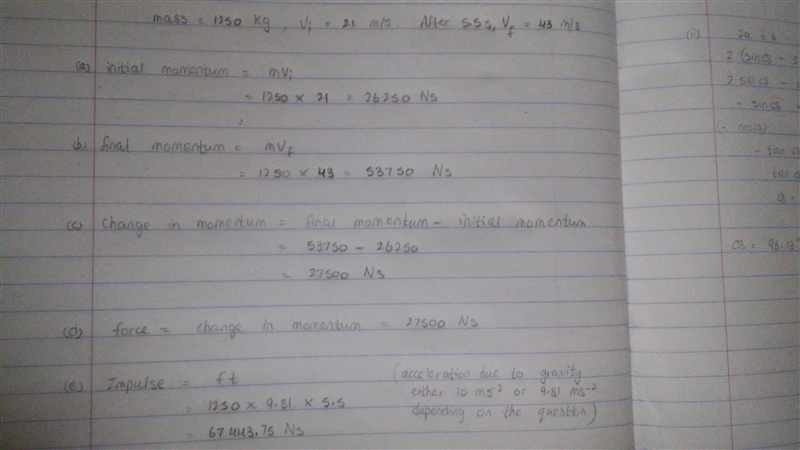 mass = 1250 kg, Vi = 21 m/s. After 5.5s, Vf = 43 m/s
(a) initial momentum = mVi
= 1250 × 21 = 26250 Ns
(b) final momentum = mVf
= 1250 × 43 = 53750 Ns
(c) change in momentum = final momentum - initial momentum
= 53750 - 26250
= 27500 Ns
(d) force = change in momentum = 27500 Ns
(e) Impulse = ft
= 1250 × 9.81 × 5.5
= 67443.75 Ns
(acceleration due to gravity
either 10 ms² or 9.81 ms⁻²
depending on the question)
(ii) 2a = b
2 (sin
2 sin
- sin
- tan
tan